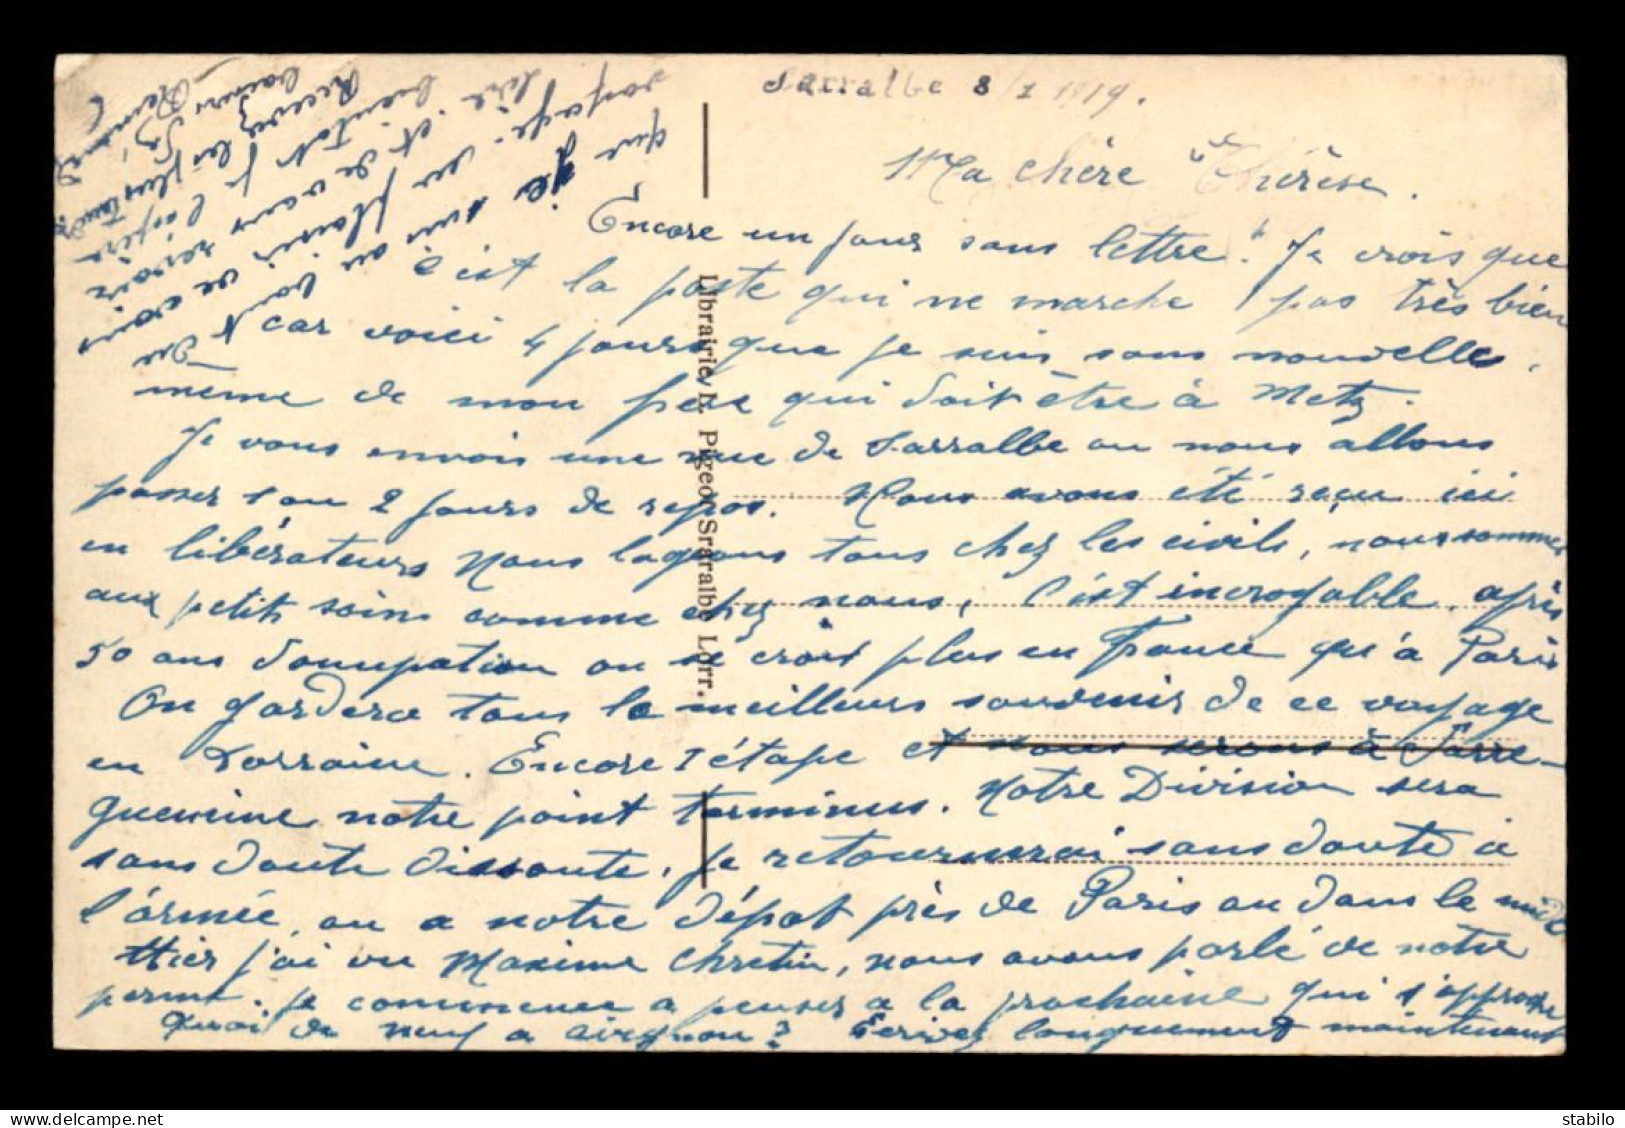 Sarralbe 8/1 1919.
Ma chère Thérèse.
Encore un jour sans lettre! Je crois que
c'est la poste qui ne marche pas très bien
car voici 4 jours que je suis sans nouvelles,
même de mon frère qui doit être à Metz.
Je vous envois une vue de Sarralbe ou nous allons
passer 1 ou 2 jours de repos. Nous avons été reçu ici
en libérateurs nous logeons tous chez les civils, nous sommes
aux petits soins comme chez nous, c'est incroyable, après
50 ans d'occupation on se croit plus en France qu'à Paris
On gardera tous le meilleurs souvenir de ce voyage
en Lorraine. Encore 1 étape et nous serons à Sarre-
guemine notre point terminus. Notre Division sera
sans doute dissoute, je retournerai sans doute à
l'armée, ou a notre dépot près de Paris ou dans le midi
Hier j'ai vu Maxime Chretin, nous avons parlé de notre
perme. je commence a penser a la prochaine qui s'approche
Quoi de neuf a Avignon? Ecrivez longuement maintenant
que je suis au bout du
voyage. je me plaisir
lire. et de vous revoir
bientot je l'espère
Recevez les plus tendres
baisers
Librairie N. Pigeon Sraralbe Lorr.
stabilo